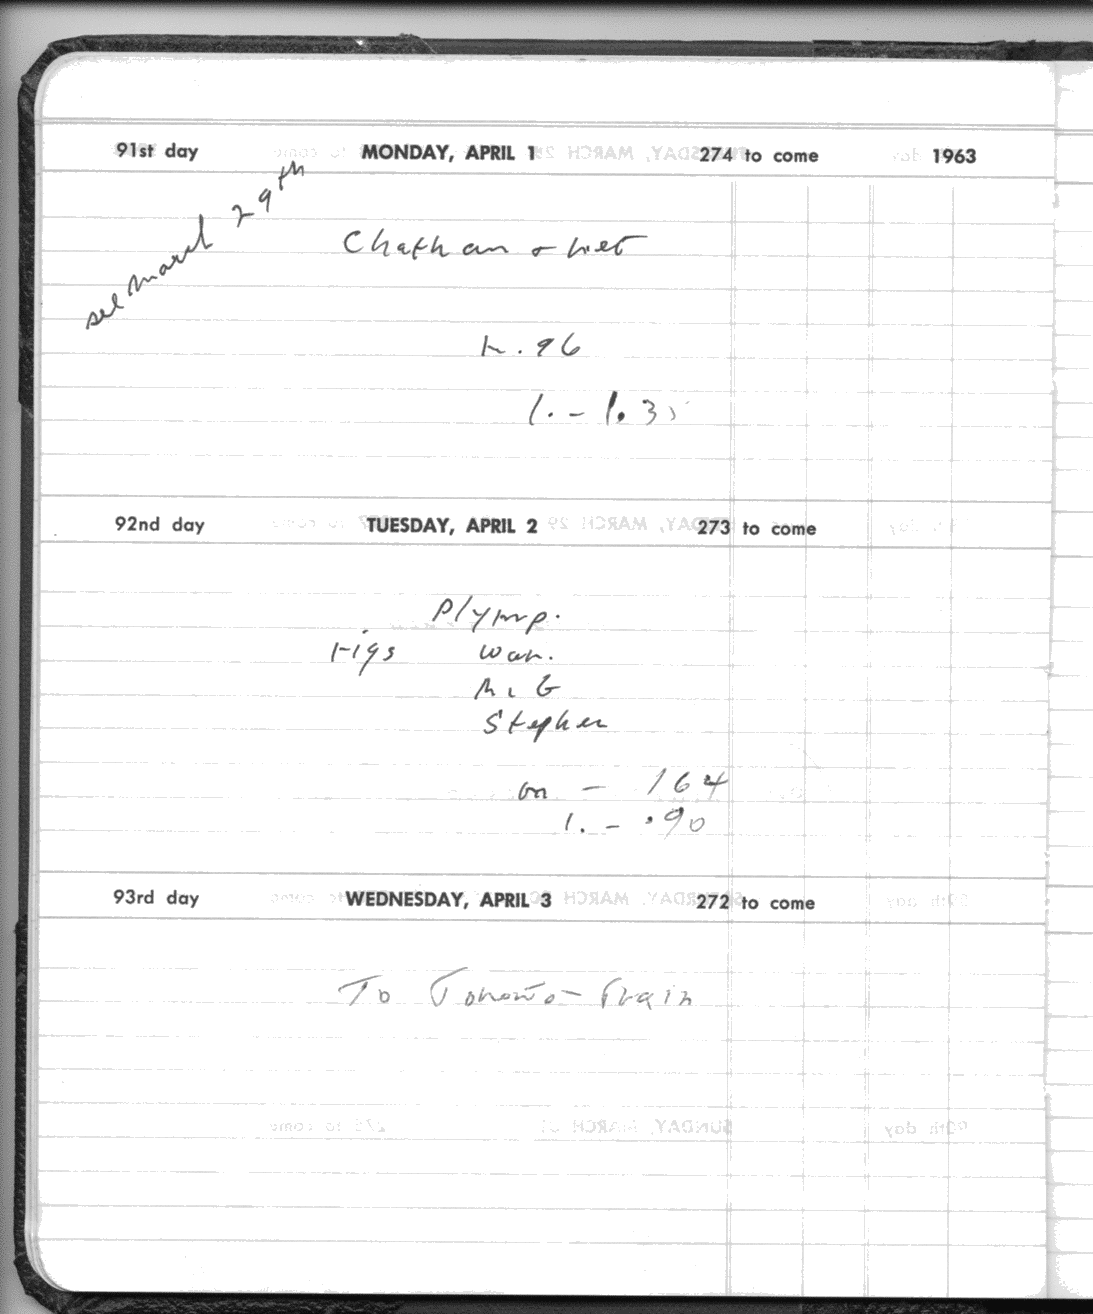 91st day MONDAY, APRIL 1 274 to come 1963
see March 29th
Chatham
.96
1. - 1.35
92nd day TUESDAY, APRIL 2 273 to come
Plymp.
Figs War.
Stephen
on - 164
1. - .90
93rd day WEDNESDAY, APRIL 3 272 to come
To Toronto - Train